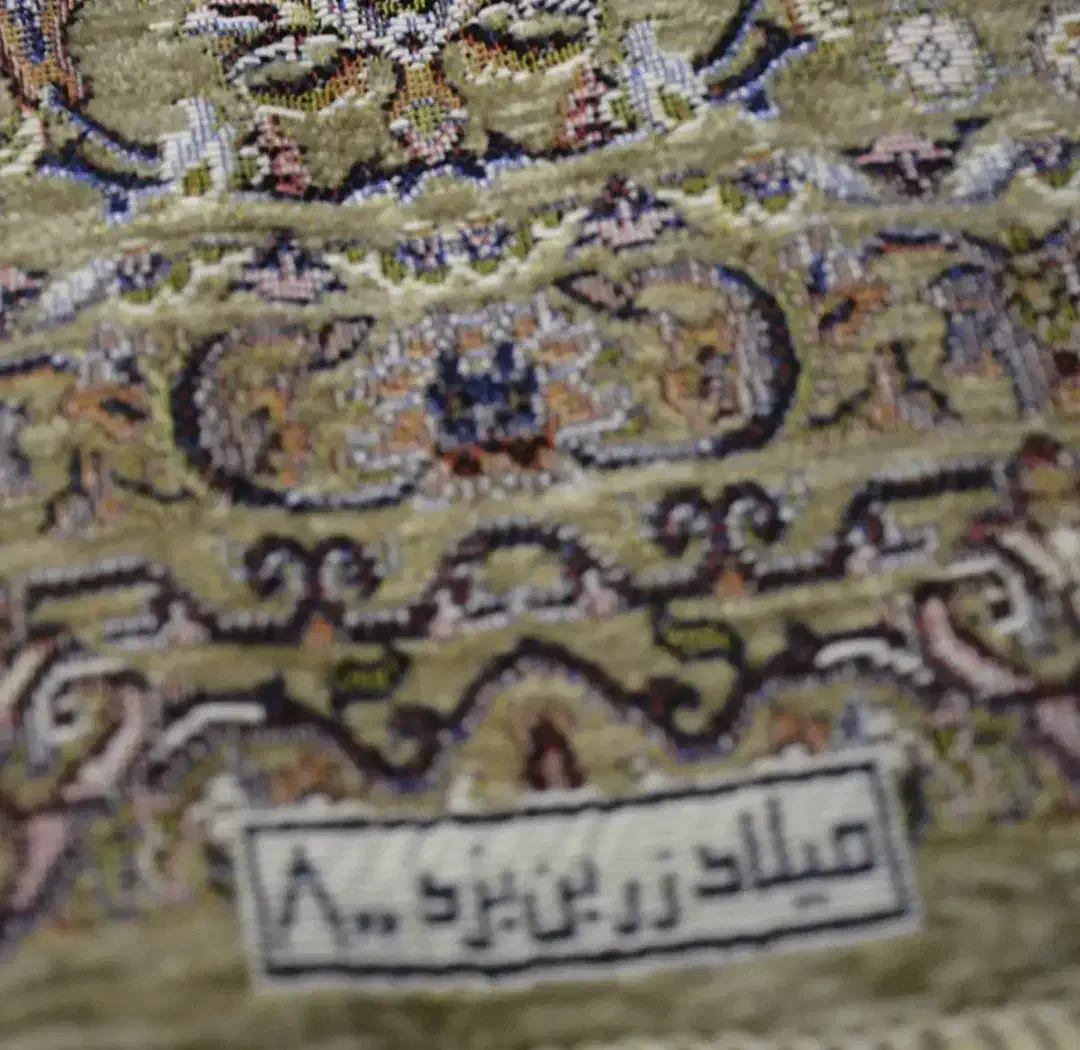 میلاد زرین یزد ۸۰۰